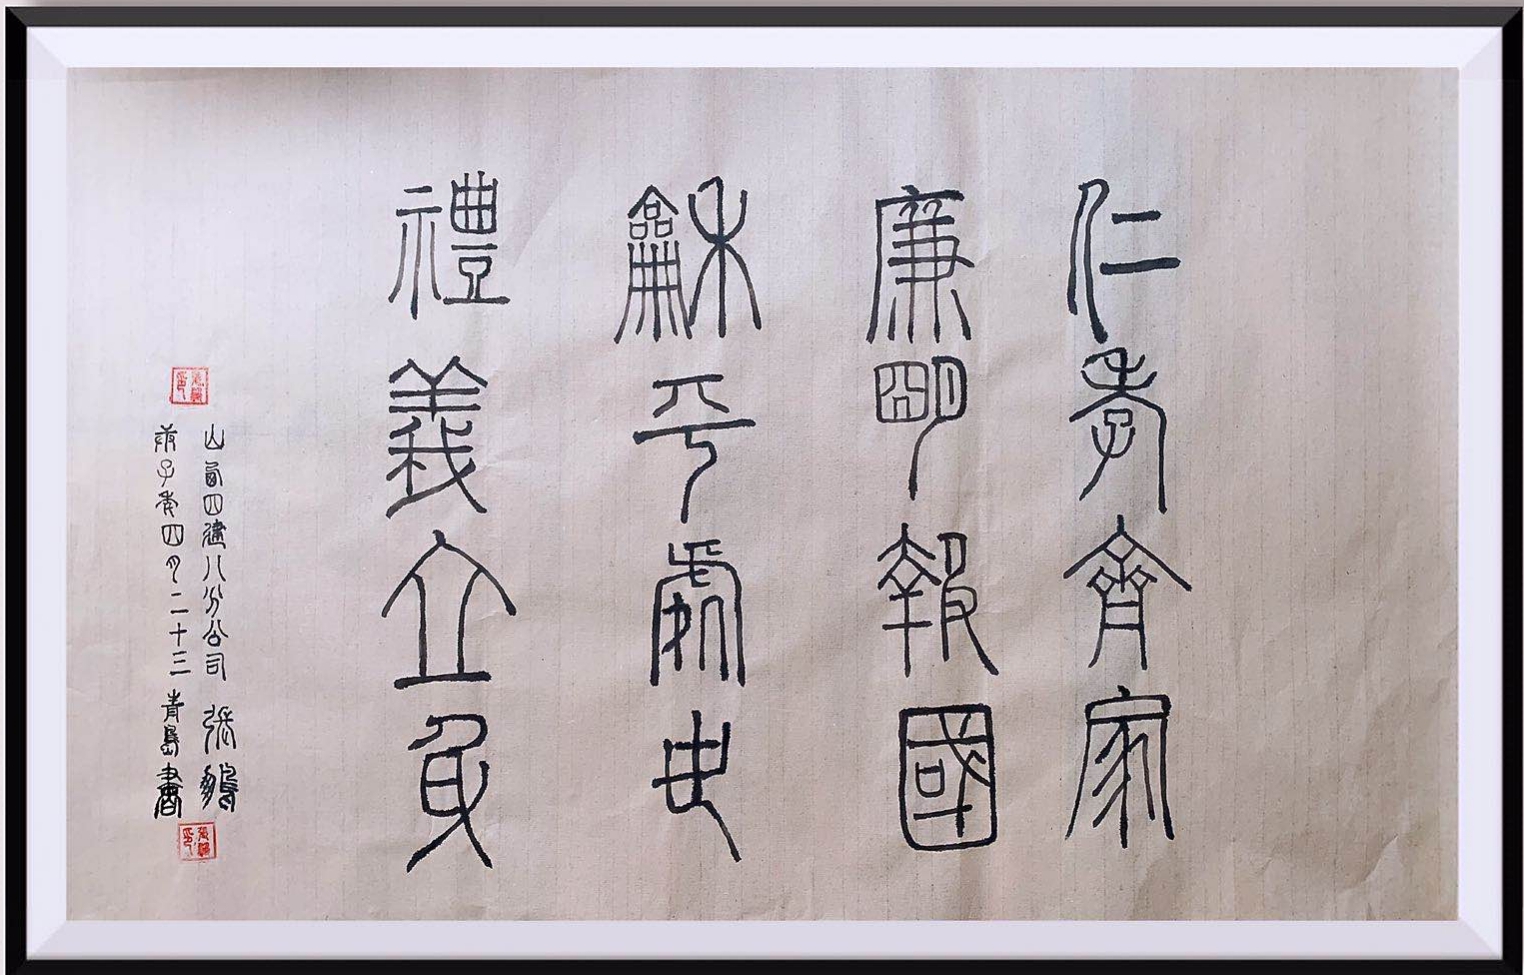 仁孝齊家
廉朙報國
龢平處世
禮義立身
山西四建八分公司 張
庚子年四月二十三 青島書